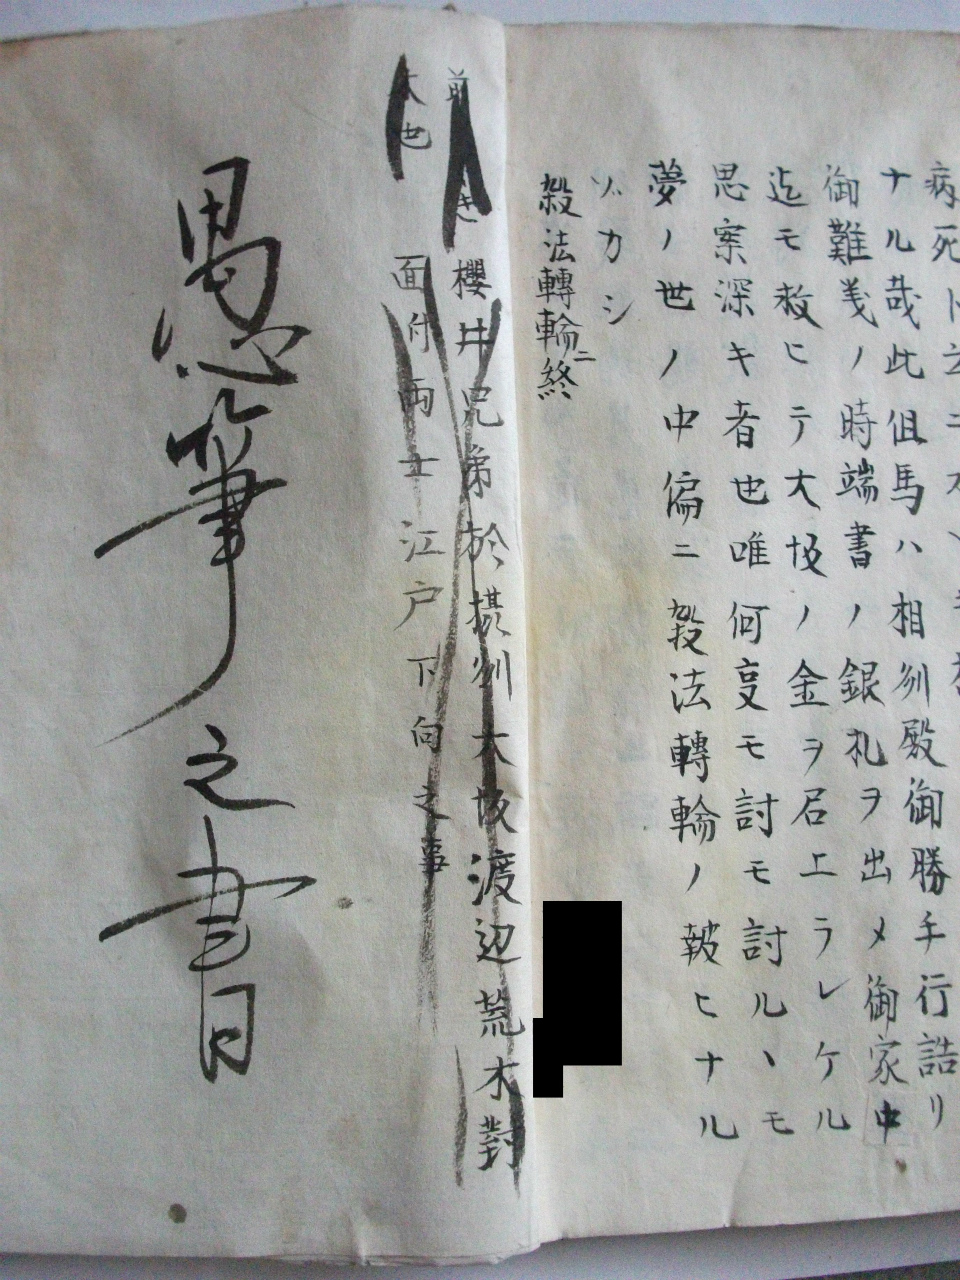 病死ト云
ナル哉此伹馬ハ相刕殿御勝手行詰リ
御難義ノ時端書ノ銀札ヲ出メ御家中
迄モ救ヒテ大坂ノ金ヲ召上ラレケル
思案深キ者也唯何叓モ討モ討ルヽモ
夢ノ世ノ中偏ニ殺法轉輪ノ報ヒナル
ゾカシ
殺法轉輪ニ終
櫻井兄弟於摂刕大坂渡辺荒木對
面付両士江戸下向之事
太也
愚筆之書